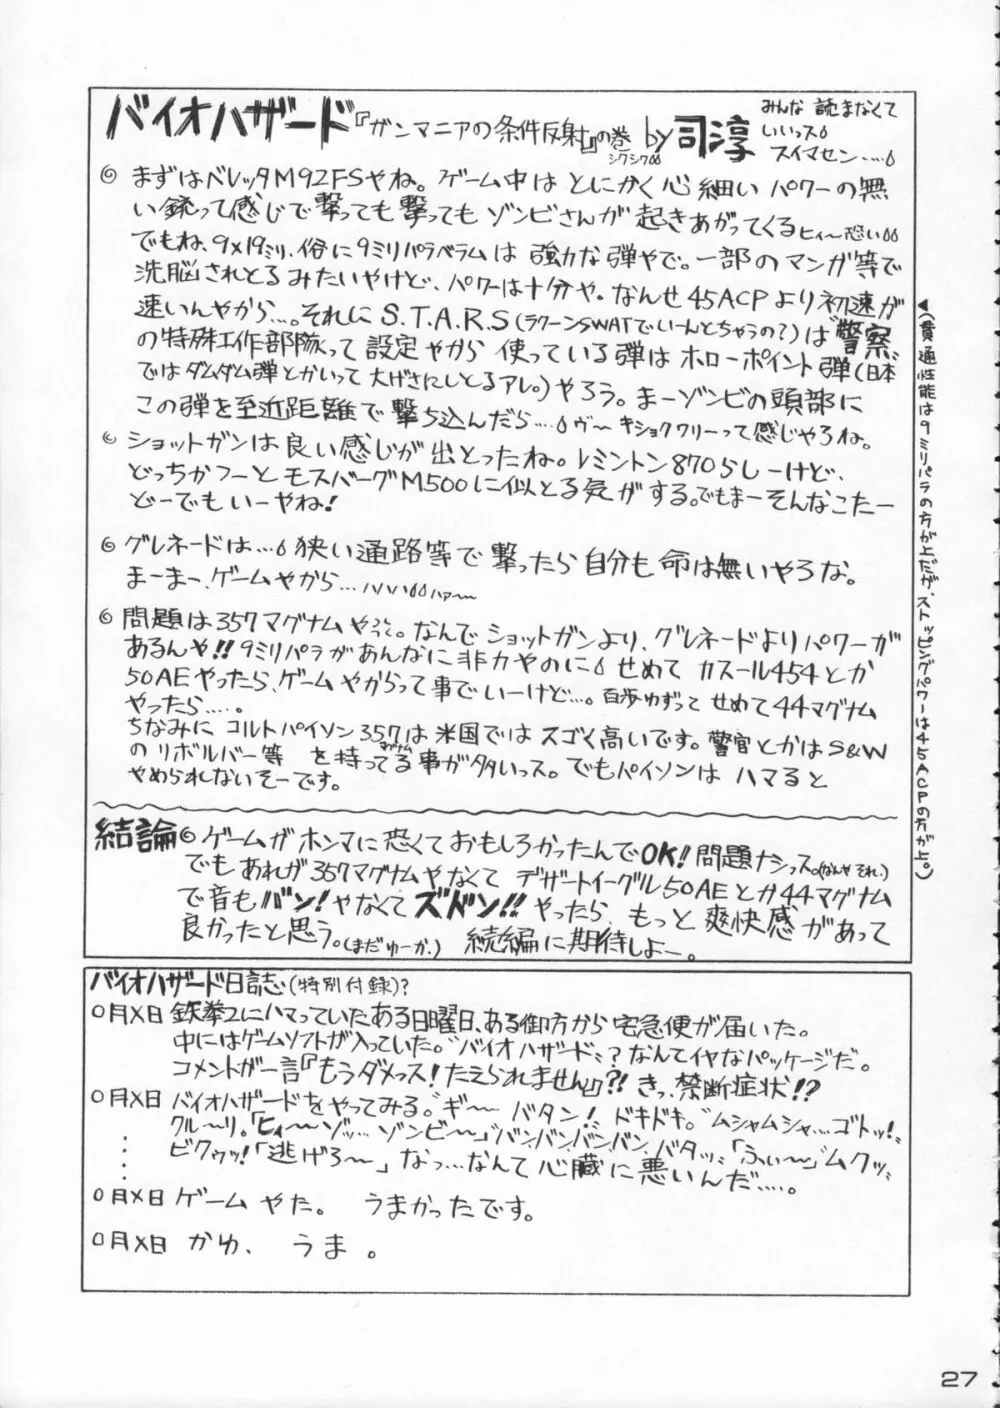 バイオハザード『ガンマニアの条件反射』の巻 by 司淳
シクシク
みんな 読まなくて
いいっス
スイマセン……
◎ まずはベレッタM92FSやね。ゲーム中は とにかく心細い パワーの無
い銃って感じで撃っても撃っても ゾンビさんが 起きあがってくるヒィ〜恐い
でもね、9×19ミリ、俗に9ミリパラベラムは 強力な弾やで。一部のマンガ等で
洗脳されとるみたいやけど、パワーは十分や。なんせ45ACPより初速が
速いんやから…。それにS.T.A.R.S(ラクーンSWATでいーんとちゃうの?)は“警察”
の特殊工作部隊って設定やから 使っている弾はホローポイント弾(日本
ではダムダム弾とかいって大げさにしとるアレ。)やろう。まーゾンビの頭部に
この弾を至近距離で撃ち込んだら……ヴ〜 キショクワリーって感じやろね。
◎ ショットガンは良い感じが出とったね。レミントン870らしーけど、
どっちかつーとモスバーグM500に似とる気がする。でもまーそんなこたー
どーでもいーやね!
◎ グレネードは…狭い通路等で撃ったら自分も命は無いやろな。
まーまー、ゲームやから…ハハハハァ〜
◎ 問題は357マグナムやって。なんでショットガンより、グレネードよりパワーが
あるんや!!9ミリパラがあんなに非力やのに せめて カスール454とか
50AEやったら、ゲームやからって事でいーけど…。百歩ゆずって せめて44マグナム
やったら……。
ちなみに コルトパイソン357は米国ではスゴく高いです。警官とかはS&W
のリボルバー等 を持ってる事が多いっス。でもパイソンは ハマると
やめられないそーです。
▲(貫通性能は9ミリパラの方が上だが、ストッピングパワーは45ACPの方が上。)
結論◎ ゲームがホンマに恐くておもしろかったんでOK!問題ナシっス。(なんや それ。)
でもあれが357マグナムやなくて デザートイーグル50AEとか44マグナム
で音もバン!やなくてズドン!!やったら、もっと爽快感があって
良かったと思う。(まだゆーか。) 続編に期待しよー。
バイオハザード日誌(特別付録)?
0月X日 鉄拳2にハマっていたある日曜日、ある御方から宅急便が届いた。
中にはゲームソフトが入っていた。“バイオハザード”?なんてイヤなパッケージだ。
コメントが一言『もうダメっス!たえられません』?!きっ、禁断症状!?
0月X日 バイオハザードをやってみる。“ギ〜 バタン!”ドキドキ。“ムシャムシャ…ゴトッ!”
クルーリ。「ヒィ〜ゾッ…ゾンビ〜」“バンバンバンバン、バタッ”「ふぃ〜」“ムクッ”
ビクウッ!「逃げろ〜」なっ…なんて心臓に悪いんだ……。
0月X日 ゲーム やた。 うまかったです。
0月X日 かゆ、 うま 。
27